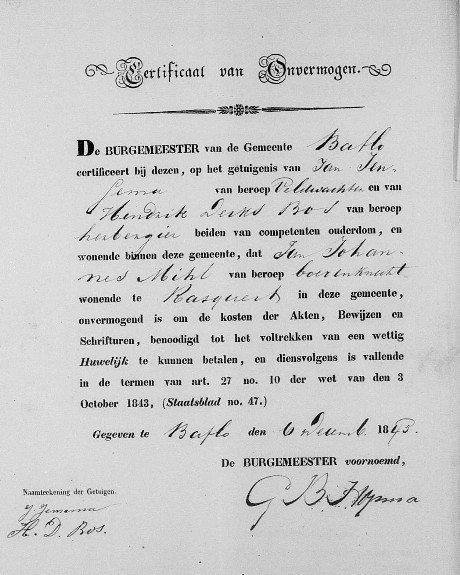 Certificaat van Onvermogen.
De BURGEMEESTER van de Gemeente Baflo
certificeert bij dezen, op het getuigenis van Jan Jen-
sema van beroep Veldwachter en van
Hendrik Derks Bos van beroep
herbergier beiden van competenten ouderdom, en
wonende binnen deze gemeente, dat Jan Johan-
nes Mihl van beroep boerenknecht
wonende te Rasquert in deze gemeente,
onvermogend is om de kosten der Akten, Bewijzen en
Schrifturen, benoodigd tot het voltrekken van een wettig
Huwelijk te kunnen betalen, en dienvolgens is vallende
in de termen van art. 27 no. 10 der wet van den 3
October 1843, (Staatsblad no. 47.)
Gegeven te Baflo den 6 Decemb. 18
De BURGEMEESTER voornoemd,
Naamteekening der Getuigen.
J Jensema
H. D. Bos.